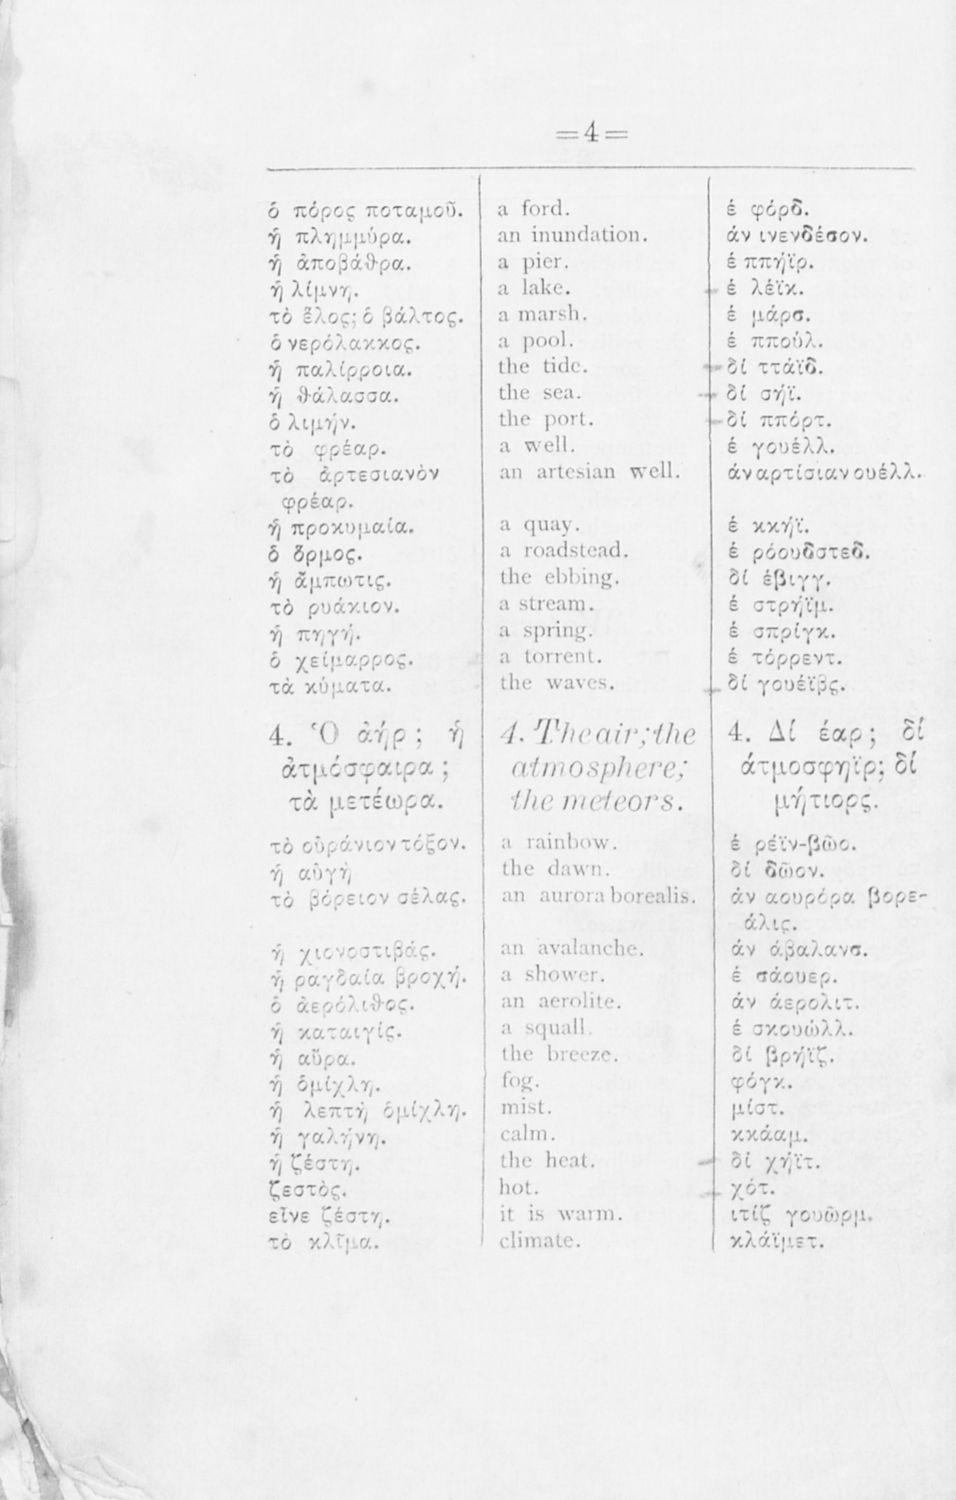 =4=
ὁ πόρος ποταμοῦ. a ford. ἐ φόρδ.
ἡ πλημμύρα. an inundation. ἀν ινενδέσον.
ἡ ἀποβάθρα. a pier. ἐ ππήϊρ.
ἡ λίμνη. a lake. ἐ λέϊκ.
τὸ ἕλος; ὁ βάλτος. a marsh. ἐ μάρσ.
ὁ νερόλακκος. a pool. ἐ ππούλ.
ἡ παλίρροια. the tide. δί ττάϊδ.
ἡ θάλασσα. the sea. δί σήϊ.
ὁ λιμήν. the port. δί ππόρτ.
τὸ φρέαρ. a well. ἐ γουέλλ.
τὸ ἀρτεσιανὸν an artesian well. ἀν αρτίσιαν ουέλλ.
φρέαρ.
ἡ προκυμαία. a quay. ἐ κκήϊ.
ὁ ὅρμος. a roadstead. ἐ ρόουδστεδ.
ἡ ἄμπωτις. the ebbing. δί έβιγγ.
τὸ ρυάκιον. a stream. ἐ στρήϊμ.
ἡ πηγή. a spring. ἐ σπρίγκ.
ὁ χείμαρρος. a torrent. ἐ τόρρεντ.
τὰ κύματα. the waves. δί γουέϊβς.
4. Ὁ ἀήρ; ἡ 4. The air; the 4. Δί έαρ; δί
ἀτμόσφαιρα; atmosphere; άτμοσφηϊρ; δί
τὰ μετέωρα. the meteors. μήτιορς.
τὸ οὐράνιον τόξον. a rainbow. ἐ ρέϊν-βῶο.
ἡ αὐγὴ the dawn. δί δῶον.
τὸ βόρειον σέλας. an aurora borealis. ἀν αουρόρα βορε-
άλις.
ἡ χιονοστιβάς. an avalanche. ἀν άβαλανσ.
ἡ ραγδαία βροχή. a shower. ἐ σάουερ.
ὁ ἀερόλιθος. an aerolite. ἀν άερολιτ.
ἡ καταιγίς. a squall. ἐ σκουώλλ.
ἡ αὔρα. the breeze. δί βρήϊζ.
ἡ ὁμίχλη. fog. φόγκ.
ἡ λεπτὴ ὁμίχλη. mist. μίστ.
ἡ γαλήνη. calm. κκάαμ.
ἡ ζέστη. the heat. δί χήϊτ.
ζεστὸς. hot. χότ.
εἶνε ζέστη. it is warm. ιτίζ γουῶρμ.
τὸ κλῖμα. climate. κλάϊμετ.